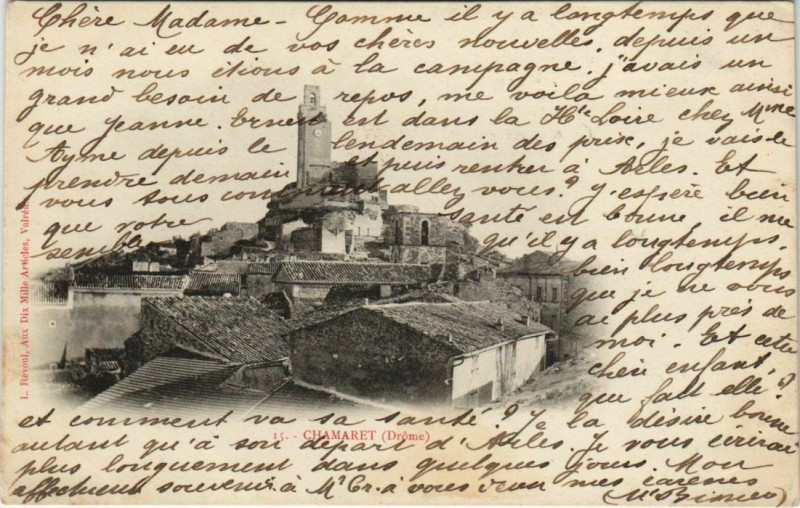 Chère Madame - Comme il y a longtemps que
je n'ai eu de vos chères nouvelles, depuis un
mois nous étions à la campagne, j'avais un
grand besoin de repos, me voilà mieux ainsi
que Jeanne. Ernest est dans la Hte Loire chez Mme
Ayme depuis le lendemain des prix, je vais le
prendre demain et puis rentrer à Arles. Et
vous sous comment allez vous? J'espère bien
que votre santé est bonne, il me
semble qu'il y a longtemps,
bien longtemps
que je ne vous
ai plus près de
moi. Et cette
chère enfant,
que fait elle?
et comment va sa santé? Je la désire bonne
autant qu'à son départ d'Arles. Je vous écrirai
plus longuement dans quelques jours. Mon
affectueux souvenir à Mr Cr. à vous deux mes caresses
15. - CHAMARET (Drôme)
L. Revoul, Aux Dix Mille Articles, Valréas